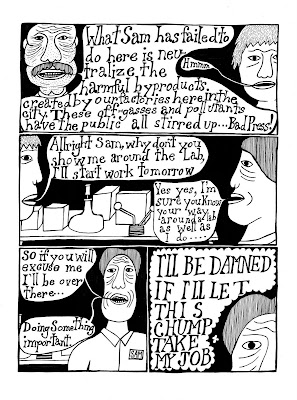 What Sam has failed to
do here is neu-
tralize the
harmful byproducts.
created by our factories here in the
city. These off-gasses and pollutants
have the public all stirred up... Bad Press!
Hmmm
Allright Sam, why don't you
show me around the Lab,
I'll start work tomorrow
Yes yes, I'm
sure you know
your way
around a lab
as well as
I do....
So if you will
excuse me
I'll be over
there...
Doing Something
important.
SAM
I'LL BE DAMNED
IF I'LL LET
THIS
CHUMP
TAKE
MY JOB